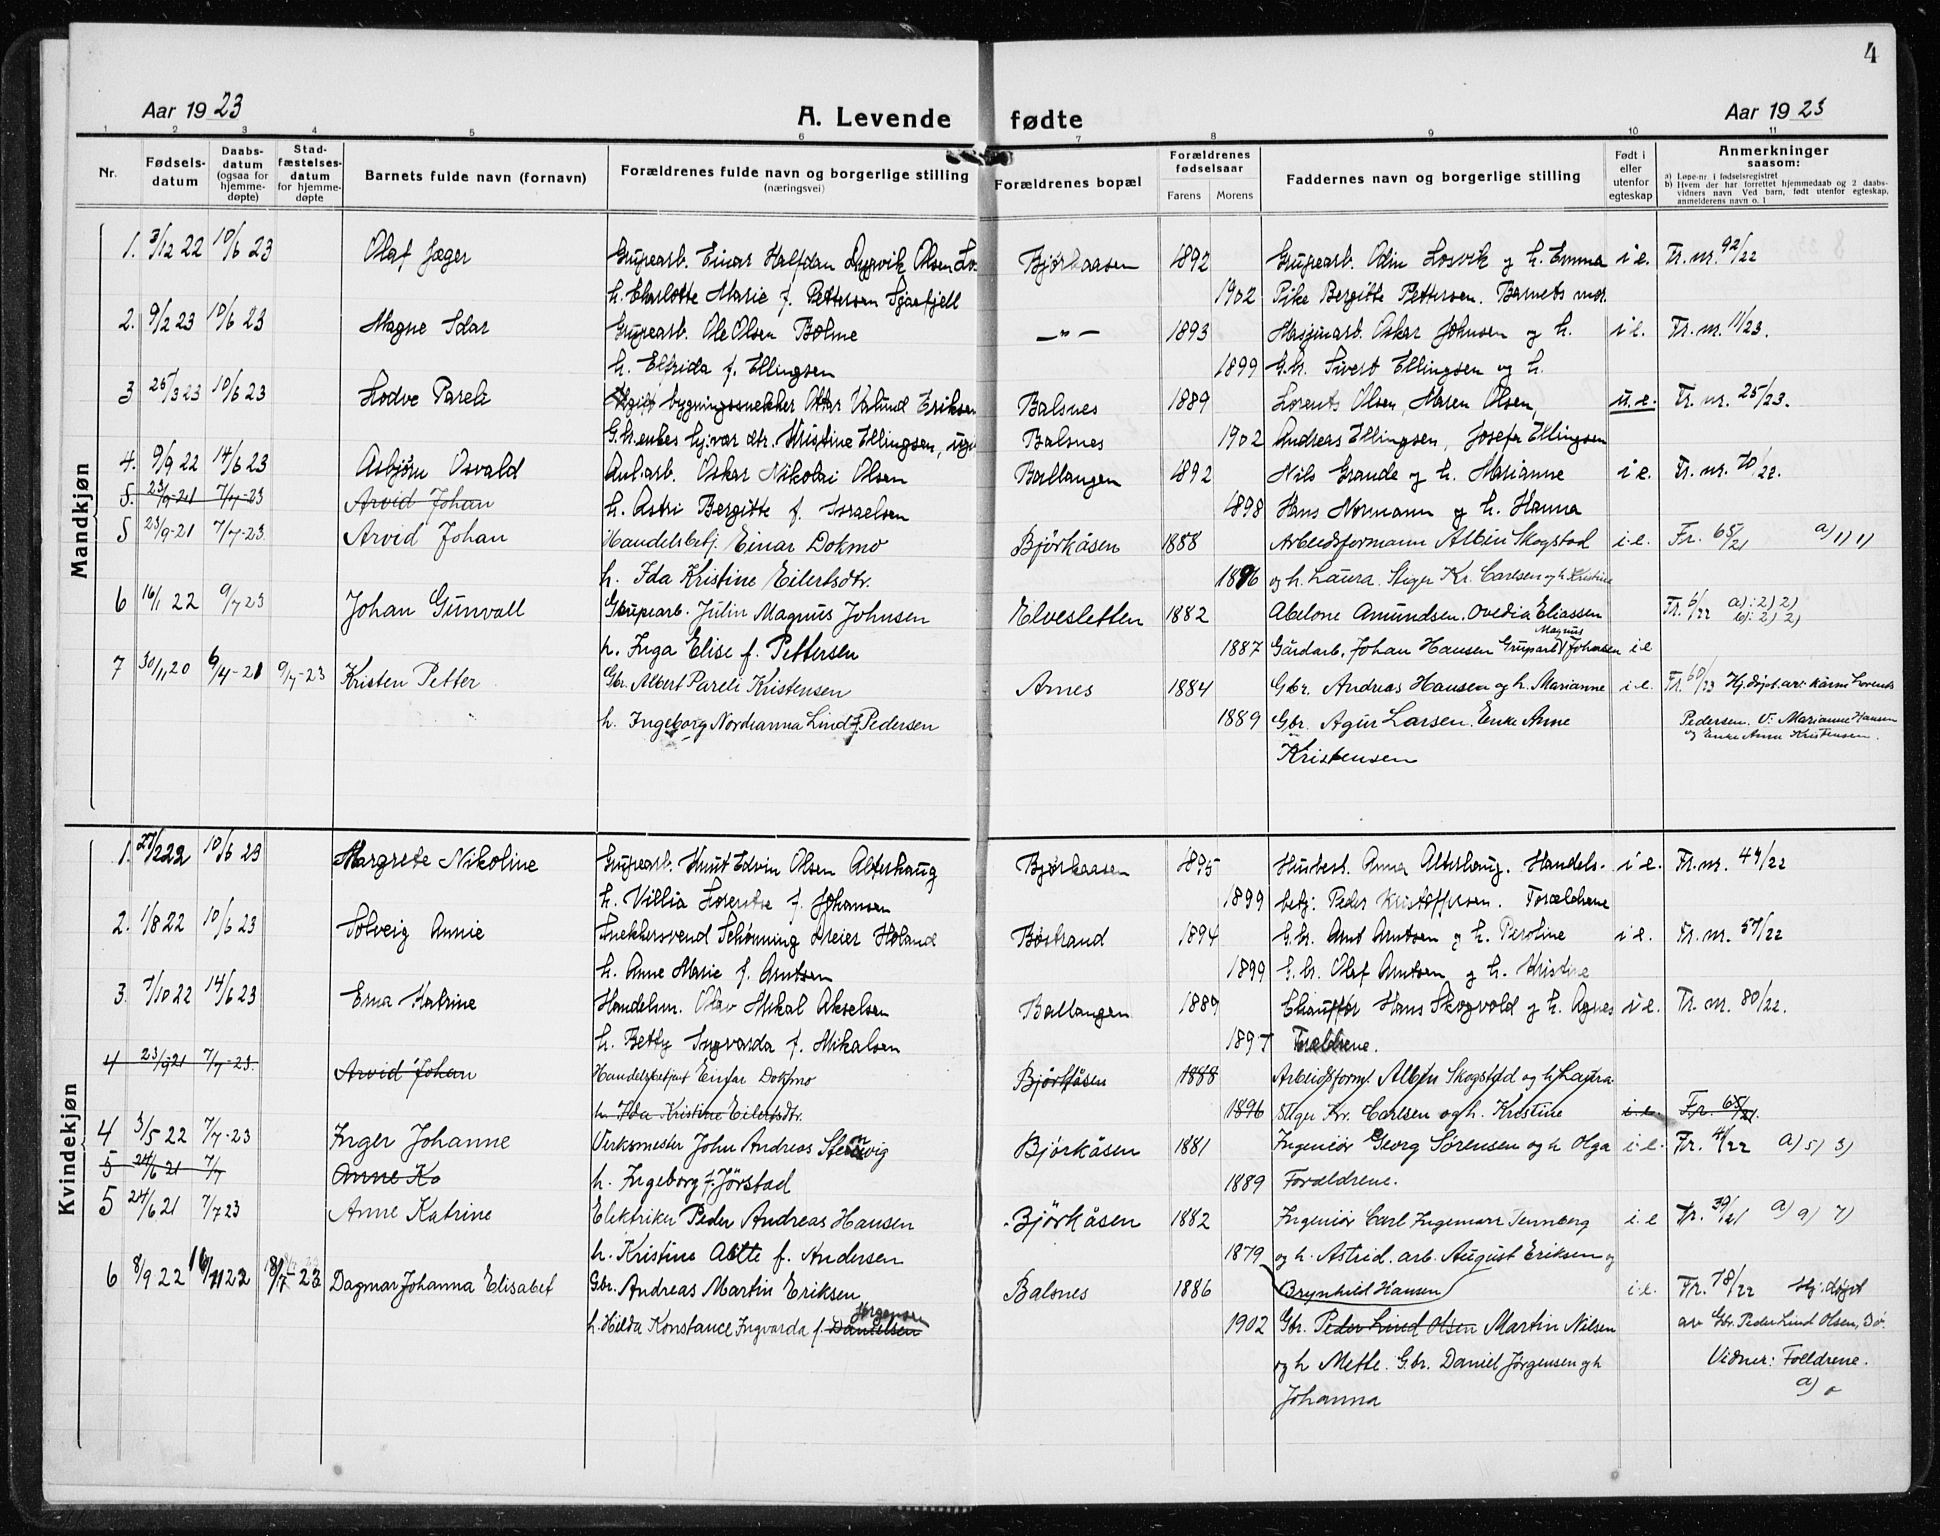 4
Aar 1923 A. Levende fødte Aar 1923
1 2 3 4 5 6 7 8 9 10 11
Nr. Fødsels-datum Daabs-datum (ogsaa for hjemme-døpte) Stad-fæstelses-datum for hjemme-døpte Barnets fulde navn (fornavn) Forældrenes fulde navn og borgerlige stilling (næringsvei) Forældrenes bopæl Forældrenes fødselsaar Farens Morens Faddernes navn og borgerlige stilling Født i eller utenfor egteskap Anmerkninger saasom:
a) Løpe-nr. i fødselsregistret
b) Hvem der har forrettet hjemmedaab og 2 daabs-vidners navn Ved barn, født utenfor egteskap, anmelderens navn o. l
Mandkjøn
1. 3/12 22 10/6 23 Olaf Jæger Grupearb. Einar Halfdan Dyrvik Olsen Bjørkaasen 1892 Grupearb. Odin Losvik og h. Emma i e. Fr. nr. 92/22
h. Charlotte Marie f. Pettersen 1902 Pike Bergitte Pettersen. Barnets mor.
2. 9/2 23 10/6 23 Magne Idar Grupearb. Ole Olsen Bolme —"— 1893 Oskar Johnsen og h. i e. Fr. nr. 11/23.
h. Elfrida f. Ellingsen 1899 G.br. Sivert Ellingsen og h.
3 25/3 23 10/6 23 Lodve Pareli bygningssnekker Valund Eriksen Balsnes 1889 Lorents Olsen, Maren Olsen, u. e. Fr. nr. 25/23.
G.br.enkes hj.vær dtr. Kristine Ellingsen, ugi Balsnes 1902 Andreas Ellingsen, Josefa Ellingsen
4. 9/9 22 14/6 23 Asbjørn Osvald Anl.arb. Oskar Nikolai Olsen Ballangen 1892 Nils Grande og h. Marianne i e. Fr. nr. 70/22.
5. 23/9-21 7/7-23 Arvid Johan h. Astri Bergitte f. Israelsen 1898 Hans Normann og h. Hanna
5 23/9-21 7/7-23. Arvid Johan Handelsbetj. Einar Dokmo Bjørkåsen 1888 Arbeidsformann Albin Skogstad i.e. Fr. 65/21 a) 1) 1)
h. Ida Kristine Eilertsdtr. 1896 og h. Laura. Stiger Kr. Carlsen og h. Kristine
6 16/1 22 9/7 23 Johan Gunvall Grupearb. Julin Magnus Johnsen Elvesletten 1882 Abelone Amundsen. Ovedia Eliassen Fr. 6/22 a): 2) 2) b): 2) 2)
h. Inga Elise f. Pettersen 1887 Gårdarb. Johan Hansen Gruparb. Magnus Johnsen i e
7 30/11 20 6/4-21 9/7-23 Kristen Petter Gbr. Albert Pareli Kristensen Arnes 1884 Gbr. Andreas Hansen og h. Marianne i.e. Fr. 60/23 Hj.døpt av Kåre Lorents
h. Ingeborg Nordianna Lind f. Pedersen 1889 Gbr. Agur Larsen. Enke Anne Pedersen. V: Marianne Hansen
Kristensen og Enke Anna Kristensen.
Kvindekjøn
1. 27/2 22 10/6 23 Margrete Nikoline Grupearb. Knut Edvin Olsen Alterhaug Bjørkaasen 1895 Husbest. Anna Alterhaug. Handels- i e. Fr. nr. 44/22
h. Villia f. Johansen 1899 betj: Peder Kristoffersen. Forældrene
2. 1/8 22 10/6 23 Solveig Annie Snekkersvend Schønning Dreier Holand Bøstrand 1894 G.br. Arnt Arntsen og h. Peroline i e. Fr. nr. 57/22
h. Anne Marie f. Arntsen 1899 G.br. Olaf Arntsen og h. Kristine
3. 7/10 22 14/6 23 Erna Katrine Handelsm. Olav Mikal Akselsen Ballangen 1889 Chauffør Hans Skogvold og h. Agnes i e. Fr. nr. 80/22.
h. Betty Ingvarda f. Mikalsen 1897 Forældrene.
4 23/9 21 7/7-23. Arvid Johan Handelsbetjent Einar Dokmo Bjørkåsen 1888 Arbeidsform. Albin Skogstad og h. Laura
h. Ida Kristine Eilertsdtr. 1896 Stiger Kr. Carlsen og h. Kristine i.e. Fr. 65/21.
4 3/5 22 7/7-23 Inger Johanne Verksmester John Andreas Stenvig Bjørkåsen 1881 Ingeniør Georg Sørensen og h Olga i e. Fr. 41/22 a) 5) 3)
5 24/6 21 7/7 Anne Ka h. Ingeborg f. Jørstad 1889 Forældrene.
5 24/6 21 7/7 23 Anne Katrine Elektriker Peder Andreas Hansen Bjørkåsen 1882 Ingeniør Carl Ingemar Tennberg i.e Fr. 39/21 a) 9) 7)
h. Kristine Alette f. Andersen 1879 og h. Astrid. arb. August Eriksen og
6 8/9 22 16/11 22 8/7-23 Dagmar Johanna Elisabet Gbr. Andreas Martin Eriksen Balsnes 1886 Brynhild Hansen i.e. Fr. 78/22 Hj. døpt
h. Hilda Konstance Ingvarda f. Danielsen Jørgensen 1902 Gbr. Peder Lind Olsen Martin Nilsen av Gbr. Peder Lind Olsen, Bø.
og h Mette. Gbr. Daniel Jørgensen og h Vidner: Foeldrene.
Johanna a) o